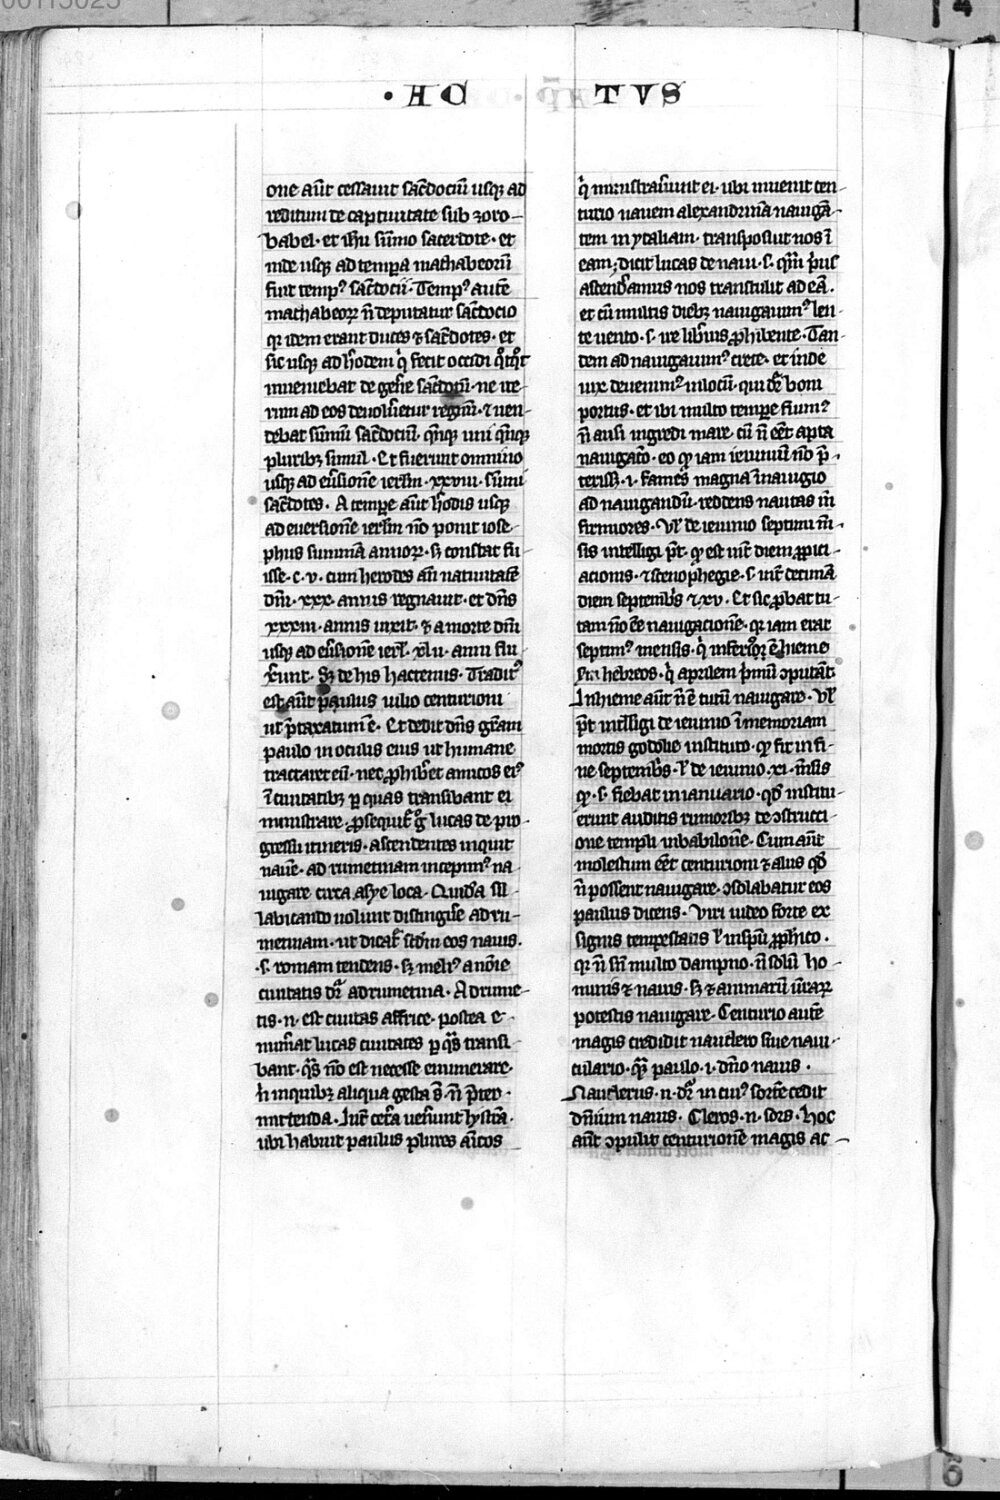 · AC TVS
one aūt cessauit sac̄dociū usqꝫ ad
reditum de captiuitate sub zoro-
babel · et ihū sūmo sacerdote · et
inde usqꝫ ad tempora machabeorū
fuit tempꝰ sac̄docii · Tempꝰ autē
machabeoꝝ n̄ deputatur sac̄docio
qꝛ idem erant duces ⁊ sac̄dotes · et
sic usqꝫ ad h̓odem q̇ fecit occidi qͦtqͦt
inueniebat de gen̄e sac̄dotū · ne ite-
rum ad eos deuolu̓etur regnū · ⁊ uen-
debat sūmū sac̄dociū · qn̄qꝫ uni qn̄qꝫ
pluribꝫ simul · Et fuerunt omnino
usqꝫ ad eu̓sionē ierl̄m · xxviii · sūmi
sac̄dotes · A tempore aūt h̓odis usqꝫ
ad euersionē ierl̄m nō ponit iose-
phus summā annoꝝ · sꝫ constat fu-
isse · c · v · cum herodes an̄ natiuitatē
dn̄i · xxx · annis regnauit · et dn̄s
xxxiii · annis uixit · ⁊ a morte dn̄i
usqꝫ ad eu̓sionē ierl̄ · xlii · anni flu-
xerunt · Sꝫ de his hactenus · Traditꝰ
est aūt paulus iulio centurioni
ut p̄taxatum ē · Et dedit dn̄s gr̄am
paulo in oculis eius ut humane
tractaret eū · nec ꝓhib̓et amicos eiꝰ
ī ciuitatibꝫ ꝑ quas transibant ei
ministrare · ꝓsequit̄ g̊ lucas de pro-
gressu itineris · ascendentes inquit
nauē · ad rumetinam incepimꝰ na-
uigare circa asye loca · Quidā sil-
labicando nolunt distingu̓e ad ru-
metinam · ut dicat̄ sc̄dm eos nauis ·
· s · romam tendens · sꝫ meliꝰ a nōīe
ciuitatis dr̄ adrumetina · Adrume-
tis · n · est ciuitas affrice · postea e-
num̓at lucas ciuitates ꝑ qͣs transi-
bant · qͣs nō est necesse enumerare ·
h̄ in quibꝫ aliqua gesta s̄ · n̄ p̄ter-
mittenda · Int̄ cet̓a uen̓unt lystrā ·
ubi habuit paulus plures amicos
q̇ ministrau̓unt ei · ubi inuenit cen-
turio nauem alexandrinā nauigā-
tem in ytaliam · transposuit nos ī
eam · dicit lucas de naui · s · qm̄ prius
ascend̓amus nos transtulit ad eā ·
et cū multis diebꝫ nauigauimꝰ len-
te uento · s · ire lib̓ius ꝓhibente · Tan-
dem adnauigauimꝰ crete · et inde
uix deuenimꝰ in locū · qui dr̄ boni
portus · et ibi multo tempore fuimꝰ
n̄ ausi ingredi mare · cū n̄ eēt apta
nauigatio · eo qꝫ iam ieiuniū nō p̄-
terissꝫ · i · fames magna ī nauigio
ad nauigandū · reddens nautas m̄
firmiores · Vl̄ de ieiunio septimi m̄-
sis intelligi pt̄ · qꝫ est int̄ diem ꝓpici-
acionis · ⁊ scenophegie · s · int̄ decimā
diem septembris ⁊ xv · Et sic ꝓbat tu-
tam nō eē nauigacionē · qꝛ iam erat
septimꝰ mensis · q̇ inferioꝛ ē hieme
s̄m hebreos · q̇ aprilem p̓mū ꝯputāt ·
In hieme aūt n̄ ē tutū nauigare · Vl̄
pt̄ intelligi de ieiunio ī memoriam
mortis godolie instituto · qꝫ fit in fi-
ne septembris · l̓ de ieiunio · xi · m̄sis
qꝫ · s · fiebat in ianuario · qd̄ institu-
erunt auditis rumoribꝫ de ꝯstructi-
one templi in babilonē · Cum aūt
molestum eēt centurioni ⁊ aliis qd̄
n̄ possent nauigare · ꝯsolabatur eos
paulus dicens · Viri uideo forte ex
signis tempestatis l̓ in sp̄u ꝓph̄ico ·
qꝛ n̄ sn̄ multo dampno · n̄ solū ho-
minis ⁊ nauis · sꝫ ⁊ animarū ur̄aꝝ
potestis nauigare · Centurio autē
magis credidit nauclero siue naui-
culario · qͣꝫ paulo · i · dn̄o nauis ·
Nauclerus · n · dr̄ in cuiꝰ sortē cedit
dn̄ium nauis · Cleros · n · sors · Hoc
aūt ꝯpulit centurionē magis ac-